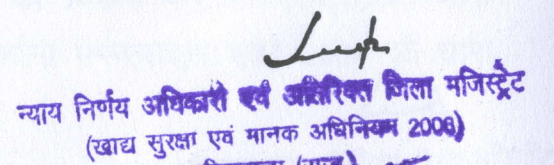 न्याय निर्णय अधिकारी एवं अतिरिक्त जिला मजिस्ट्रेट
(खाद्य सुरक्षा एवं मानक अधिनियम 2006)